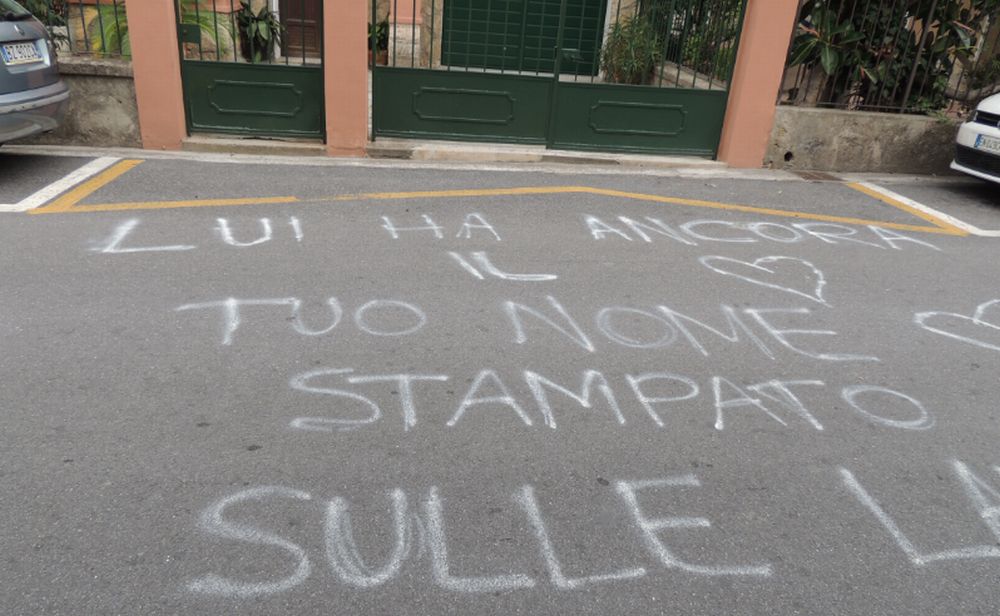 LUI HA ANCORA
IL
TUO NOME
STAMPATO
SULLE LA